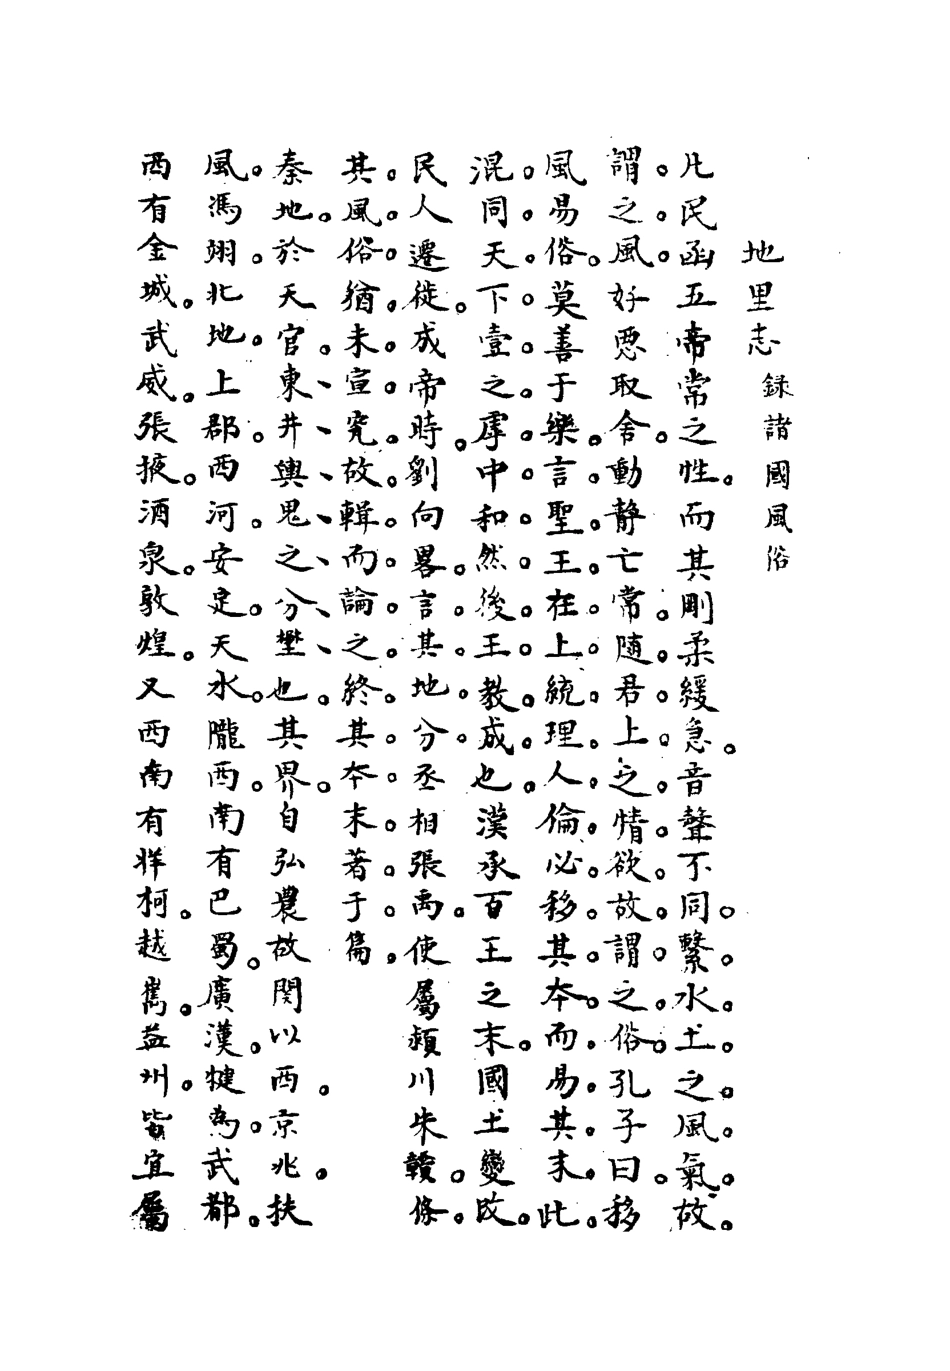 地里志 録諸國風俗
凡民函五帝常之性。而其剛柔緩急。音聲不同。繫水土之風氣。故
謂之風。好惡取舍。動靜亡常。隨君上之情欲。故謂之俗。孔子曰。移
風易俗。莫善于樂。言聖王在上。統理人倫。必移其本。而易其末。此
混同天下。壹之虖中和。然後王教成也。漢承百王之末。國土變改。
民人遷徙。成帝時。劉向畧言其地分。丞相張禹。使屬潁川朱贛。條
其風俗。猶未宣究。故輯而論之。終其本末。著于篇。
秦地。於天官。東井輿鬼之分壄也。其界。自弘農故関以西。京兆。扶
風。馮翊。北地。上郡。西河。安定。天水。隴西。南有巴蜀。廣漢。犍為。武都。
西有金城。武威。張掖。酒泉。敦煌。又西南有牂柯。越巂。益州。皆宜屬